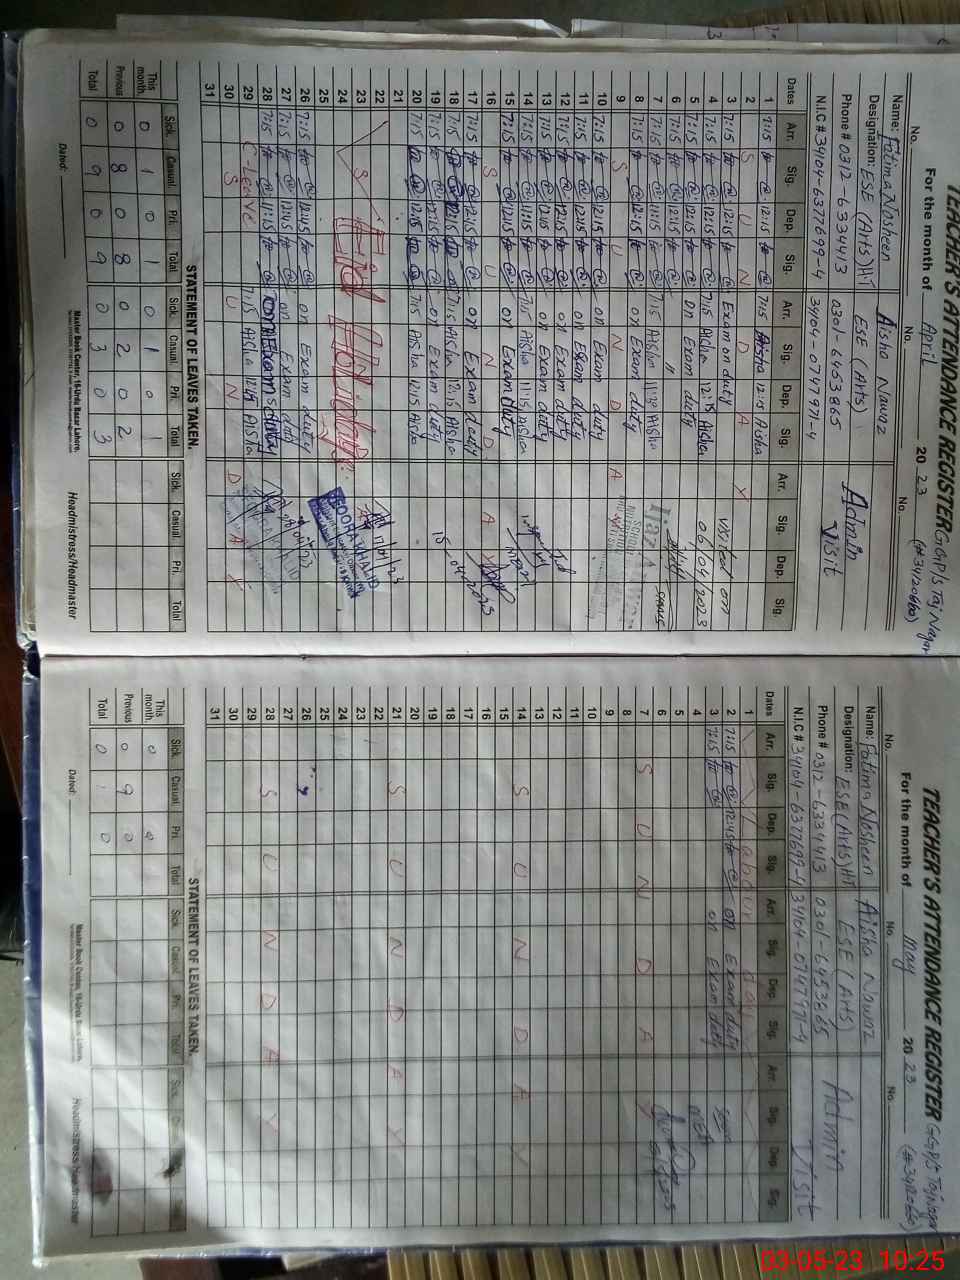 TEACHER'S ATTENDANCE REGISTER G.G.P/S Taj Nagar
No. No. No. (#34120660)
For the month of April 2023
Name: Fatima Nosheen Aisha Nawaz
Designation: ESE (Arts) HT ESE (Arts) Admin
Phone # 0312-6334413 0301-6453865 Visit
N.I.C # 34104-6377699-4 34104-0747971-4
Dates Arr. Sig. Dep. Sig. Arr. Sig. Dep. Sig. Arr. Sig. Dep. Sig.
1 7:15 12:15 7:15 Aisha 12:15 Aisha
2 S U N D A Y
3 7:15 12:45 Exam on duty Visited on
4 7:15 12:15 7:15 Aisha 12:15 Aisha 06/04/2023
5 7:15 12:15 On Exam duty
6 7:15 12:15 "
7 7:15 11:15 7:15 Aisha 11:30 Aisha
8 7:15 12:15 on Exam duty
9 S U N D A Y
10 7:15 12:15 on Exam duty
11 7:15 12:45 on Exam duty
12 7:15 12:45 on Exam duty
13 7:15 12:15 on Exam duty
14 7:15 11:15 7:15 Aisha 11:15 Aisha
15 7:15 12:15 on Exam duty
16 S U N D A Y
17 7:15 12:45 on Exam duty
18 7:15 12:45 7:15 Aisha 12:15 Aisha 15-04-2023
19 7:15 12:15 on Exam duty
20 7:15 12:15 7:15 Aisha 12:15 Aisha
21
22 17/04/23
23 Eid Holidays
24
25
26 7:15 12:45 on Exam duty
27 7:15 12:45 on Exam duty
28 7:15 11:15 on Exam duty
29 C-Leave 7:15 Aisha 12:15 Aisha
30 S U N D A Y
31
STATEMENT OF LEAVES TAKEN.
Sick. Casual. Pri. Total Sick. Casual. Pri. Total Sick. Casual. Pri. Total
This month. 0 1 0 1 0 1 0 1
Previous 0 8 0 8 0 2 0 2
Total 0 9 0 9 0 3 0 3
Dated: Master Book Center, 16-Urdu Bazar Lahore. Headmistress/Headmaster
TEACHER'S ATTENDANCE REGISTER G.G.P/S Taj Nagar
No. No. No. (#34120660)
For the month of May 2023
Name: Fatima Nosheen Aisha Nawaz
Designation: ESE (Arts) HT ESE (Arts) Admin
Phone # 0312-6334413 0301-6453865 Visit
N.I.C # 34104-6377699-4 34104-0747971-4
Dates Arr. Sig. Dep. Sig. Arr. Sig. Dep. Sig. Arr. Sig. Dep. Sig.
1 Labour day
2 7:15 12:45 on Exam duty
3 7:15 on Exam duty
4
5
6
7 S U N D A Y
8
9
10
11
12
13
14 S U N D A Y
15
16
17
18
19
20
21 S U N D A Y
22
23
24
25
26
27
28 S U N D A Y
29
30
31
STATEMENT OF LEAVES TAKEN.
Sick. Casual. Pri. Total Sick. Casual. Pri. Total
This month. 0 0
Previous 0 9 0
Total 0 0
Dated: Master Book Center, 16-Urdu Bazar Lahore. Headmistress/Headmaster
03-05-23 10:25